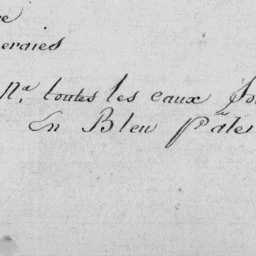 re
eraies
Nᵃ. toutes les eaux So
En Bleu pâle